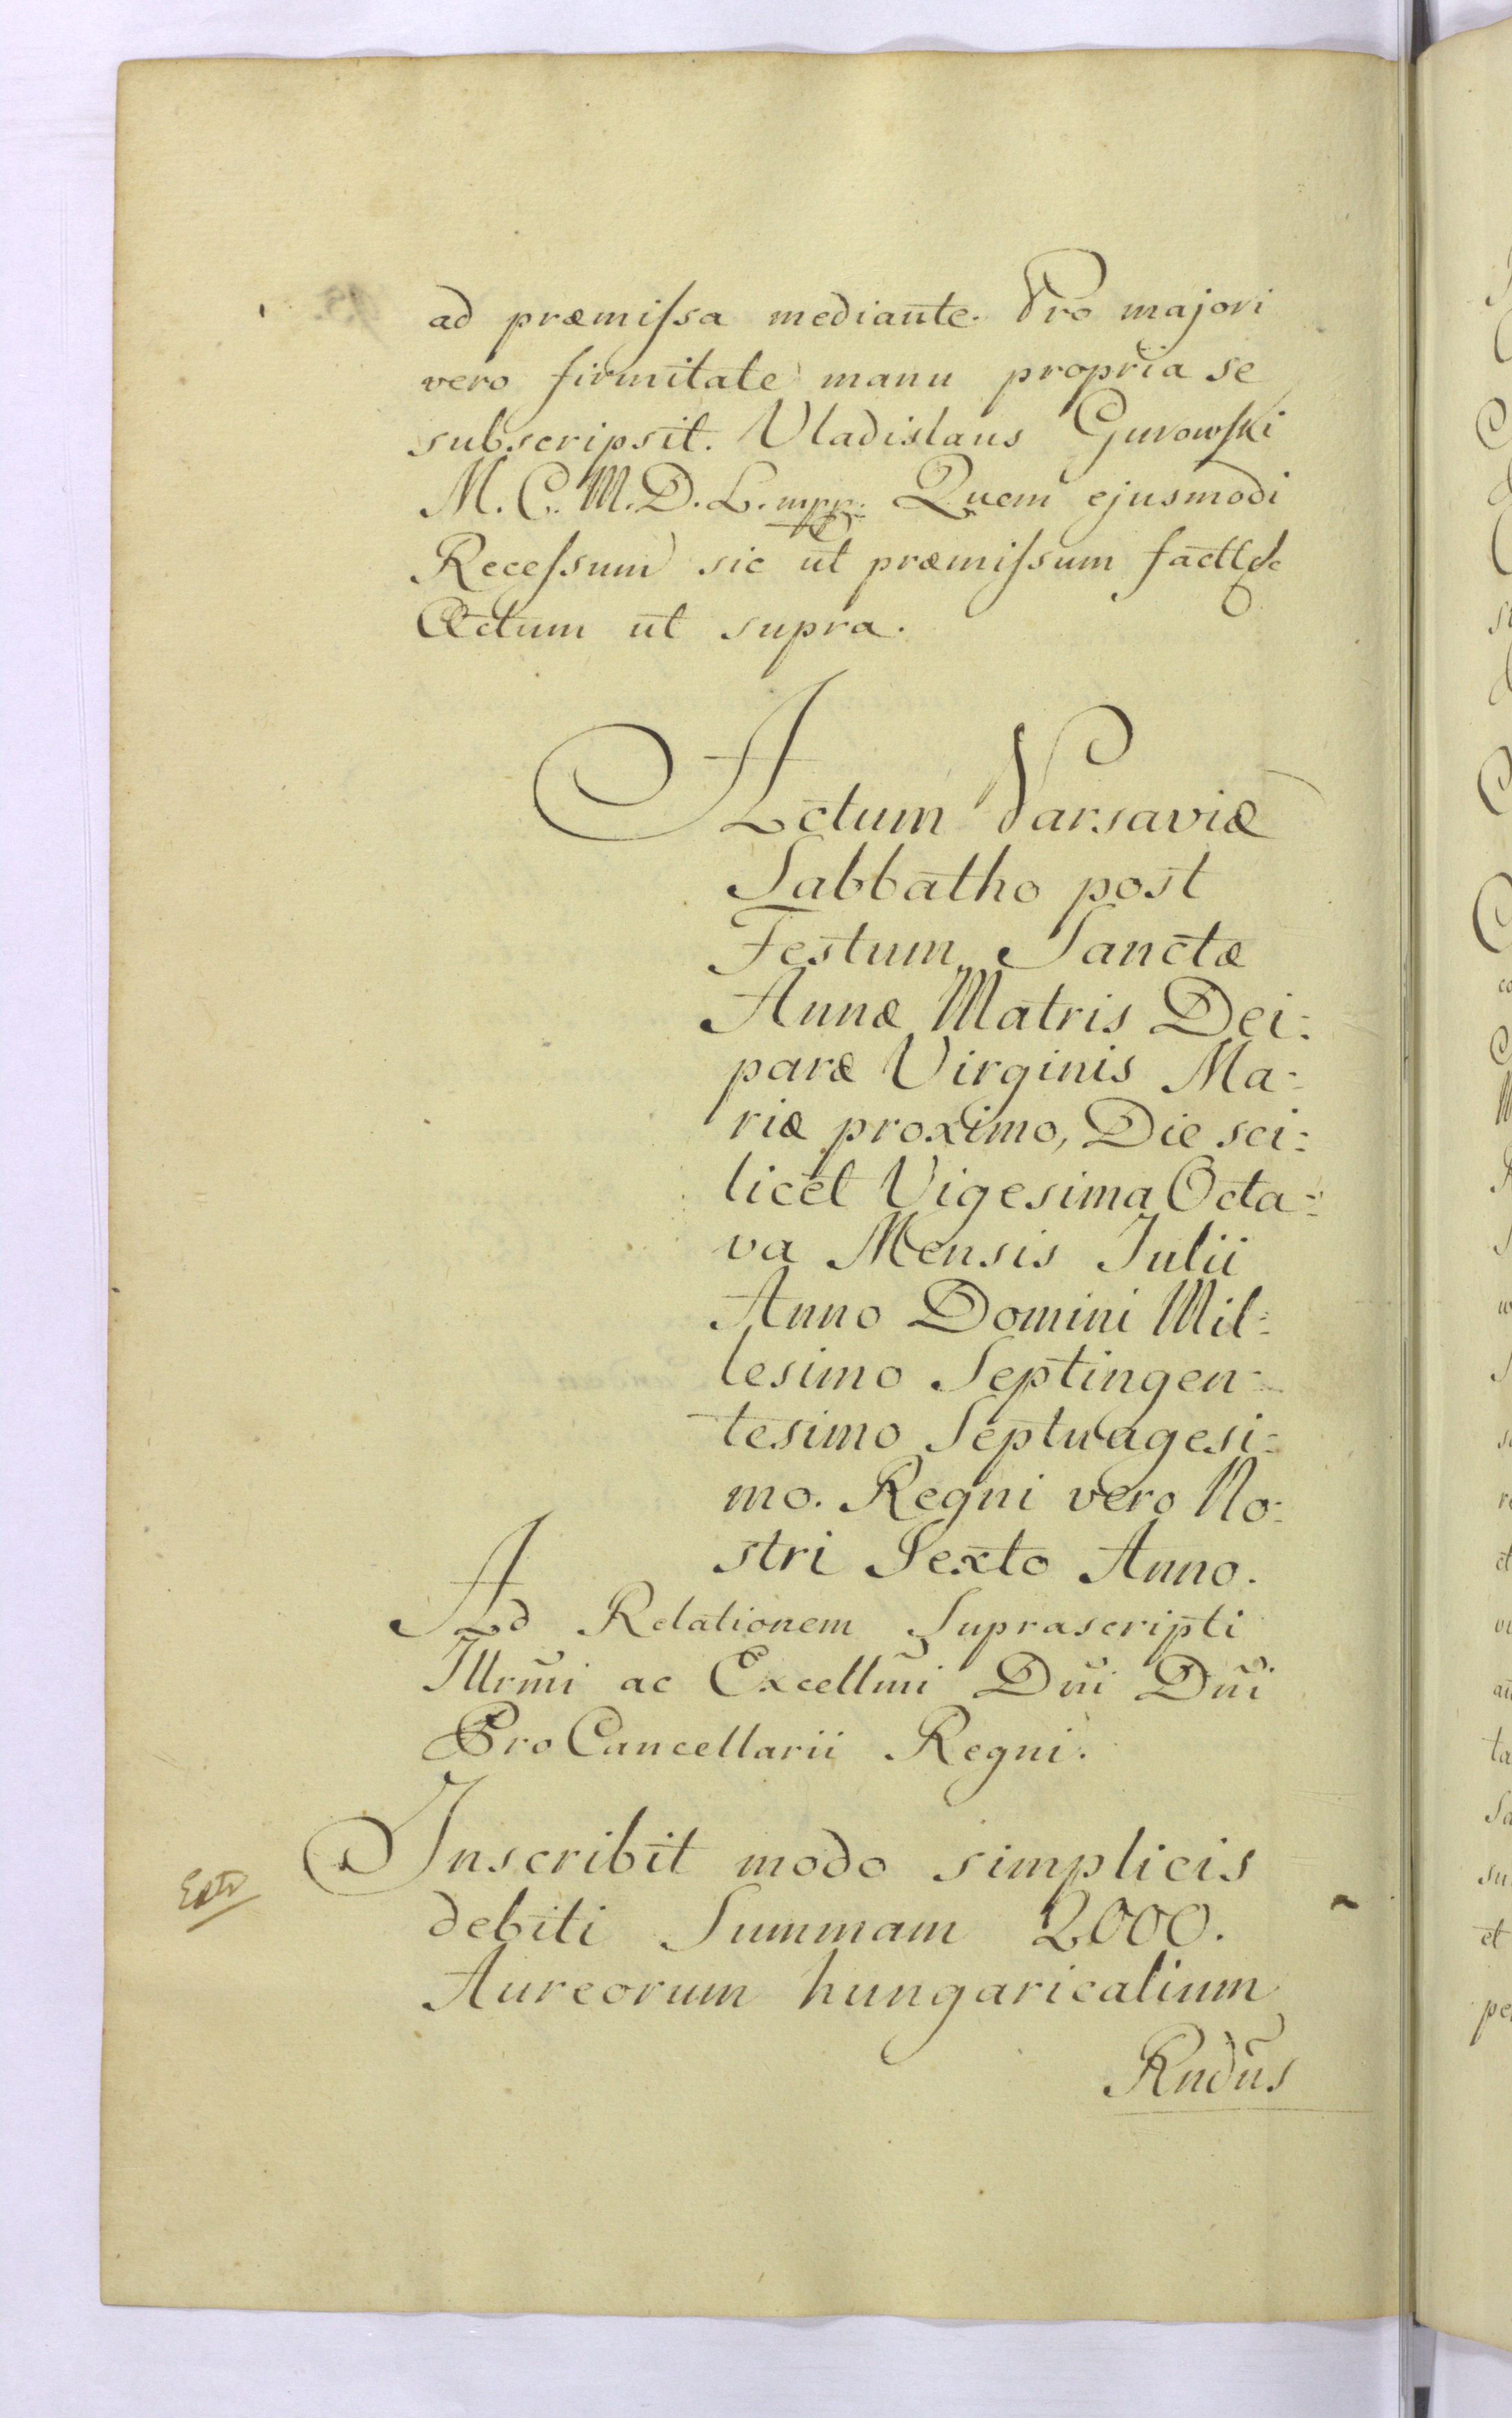 ad præmiſsa mediante. Pro majori
vero firmitate manu propria se
subscripsit. Vladislaus Gurowſki
M. C. M. D. L. mpp. Quem ejusmodi
Receſsum sic ut præmiſsum
Actum ut supra.
Actum Varsaviæ
Sabbatho post
Festum Sanctæ
Annæ Matris Dei:
paræ Virginis Ma:
riæ proximo, Die sci:
licet Vigesima Octa:
va Mensis Julii
Anno Domini Mil:
lesimo Septingen:
tesimo Septuagesi:
mo. Regni vero No:
stri Sexto Anno.
Ad Relationem Suprascripti
Illrmi ac Excellmi Dni Dni
Pro Cancellarii Regni.
Inscribit modo simplicis
debiti Summam 2000.
Aureorum hungaricalium
Rndus